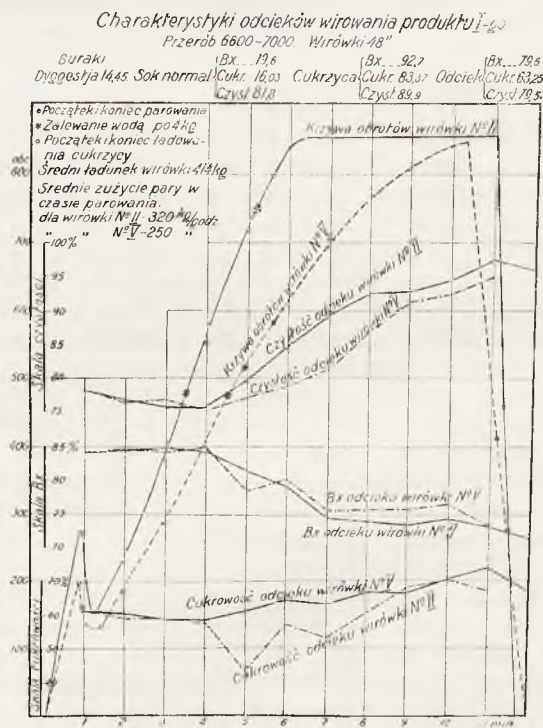 Charakterystyki odcieków wirowania produktu I-go
Przerób 6600-7000. Wirówki 48"
Buraki
Dygestja 14,45. Sok normal
Bx ... 19,6
Cukr. 16,03
Czyst 81,8
Cukrzyca
Bx ... 92,7
Cukr. 83,37
Czyst 89,9
Odciek
Bx ... 79,6
Cukr. 63,25
Czyst. 79,5
Początek i koniec parowania
Zalewanie wodą po 4 kg
Początek i koniec ładowania cukrzycy
Średni ładunek wirówki 414 kg
Średnie zużycie pary w
czasie parowania.
dla wirówki № II - 320 kg/godz
" " № V - 250 "
Krzywa obrotów wirówki № II
Krzywa obrotów wirówki № V
Czystość odcieku wirówki № II
Czystość odcieku wirówki № V
Bx odcieku wirówki № V
Bx odcieku wirówki № II
Cukrowość odcieku wirówki № V
Cukrowość odcieku wirówki № II
Skala czystości
100%
95
90
85
80
75
Skala Bx
85%
80
75
70
Skala cukrowości
70%
60
800
700
600
500
400
300
200
100
1 2 3 4 5 6 7 8 9 10